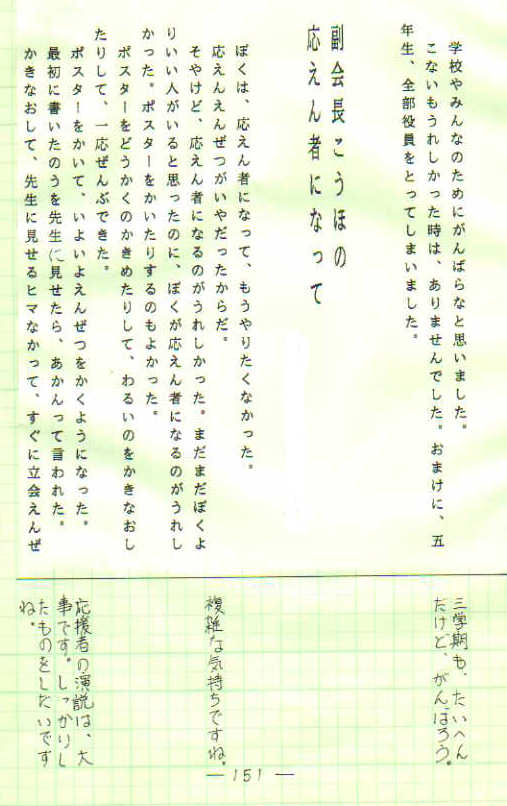 学校やみんなのためにがんばらなと思いました。
こないもうれしかった時は、ありませんでした。おまけに、五
年生、全部役員をとってしまいました。
副会長こうほの
応えん者になって
ぼくは、応えん者になって、もうやりたくなかった。
応えんえんぜつがいやだったからだ。
そやけど、応えん者になるのがうれしかった。まだまだぼくよ
りいい人がいると思ったのに、ぼくが応えん者になるのがうれし
かった。ポスターをかいたりするのもよかった。
ポスターをどうかくのかきめたりして、わるいのをかきなおし
たりして、一応ぜんぶできた。
ポスターをかいて、いよいよえんぜつをかくようになった。
最初に書いたのうを先生に見せたら、あかんって言われた。
かきなおして、先生に見せるヒマなかって、すぐに立会えんぜ
三学期も、たいへん
だけど、がんばろう。
複雑な気持ちですね。
応援者の演説は、大
事です。しっかりし
たものをしたいです
ね。
— 151 —